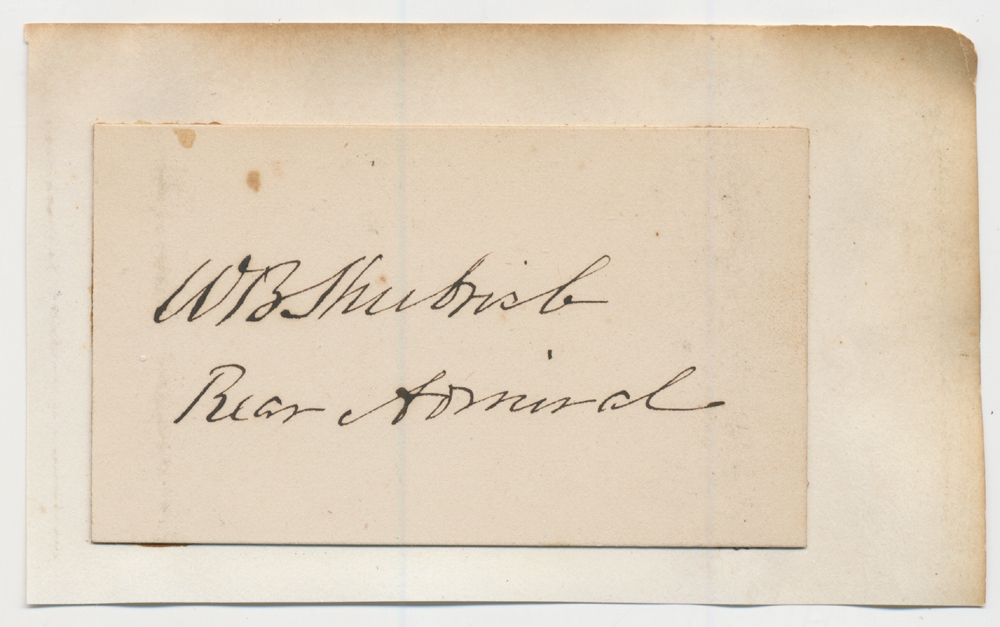 W B Shubrick
Rear Admiral